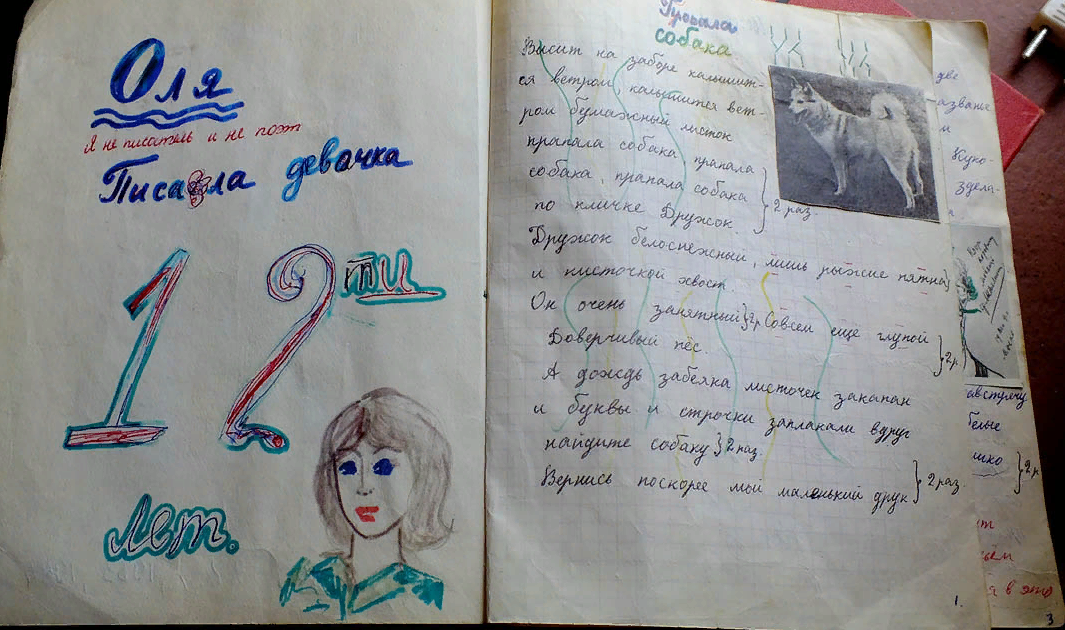 Оля
Я не писатель и не поэт
Писала девачка
12 ти
лет.
Пропала
собака
Висит на заборе калышит-
ся ветром, калышится вет-
ром бумажный листок
прапала собака прапала
собака, прапала собака } 2 раз.
по кличке Дружок.
Дружок белоснежный, лишь рыжие пятна}
и кисточкой хвост.
Он очень занятный}2р Совсем еще глупой
Доверчивый пёс. } 2р.
А дождь забеяка листочек закапал
и буквы и строчки заплакали вдруг
найдите собаку } 2 раз.
Вернись поскорее мой маленький друк } 2 раз.
1.
две
азванье
и
Куко-
здела-
австречу
белые
шко } 2 р
я в это
3